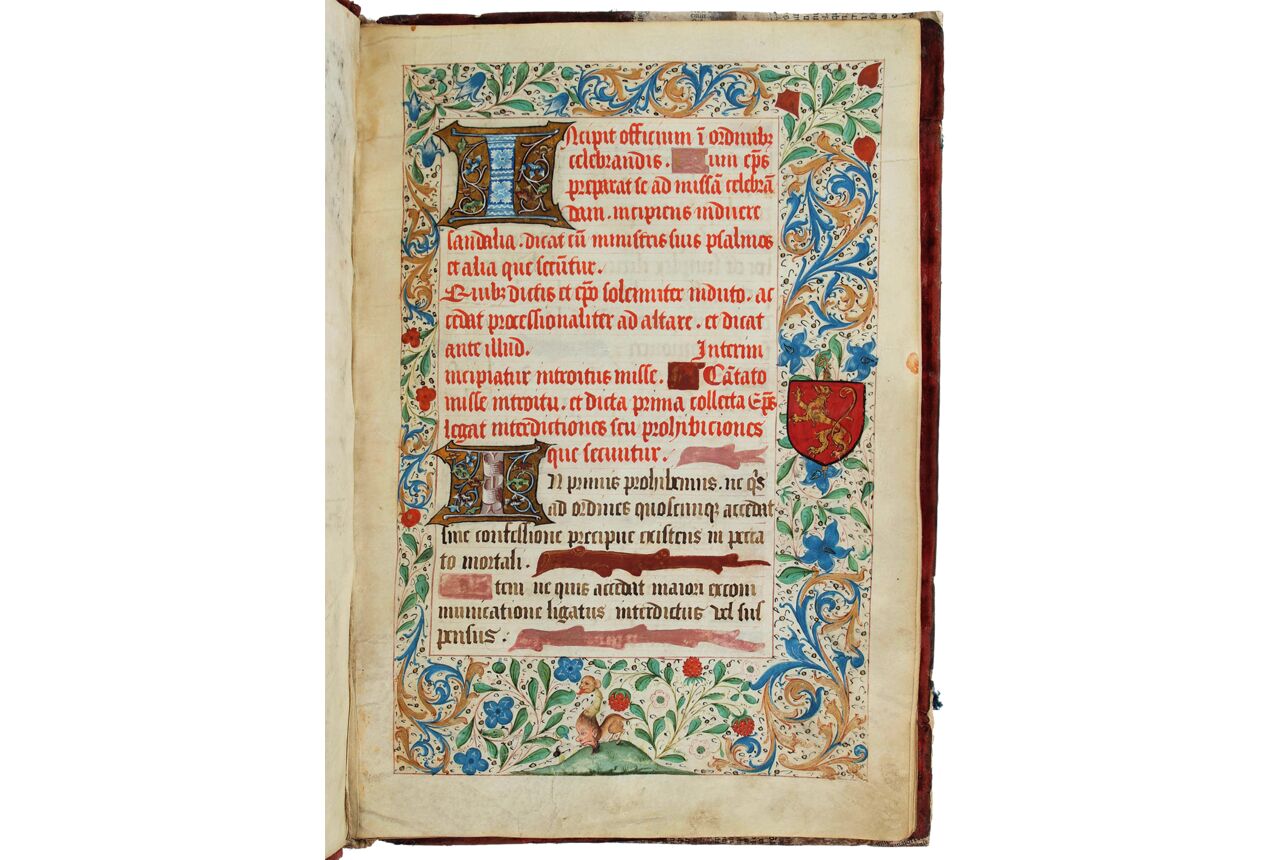 Incipit officium ī ordinibꝫ
celebrandis . Cum ep̄s
preparat se ad missā celebrā
dam . incipiens induere
sandalia . dicat cū ministris suis psalmos
et alia que secūtur .
Quibꝫ dictis et ep̄o solemniter induto . ac
cedat processionaliter ad altare . et dicat
ante illud . Interim
incipiatur introitus misse . Cātato
misse introitu . et dicta prima collecta Ep̄s
legat interdictiones seu prohibiciones
que secuntur .
In primis prohibemus . ne q̇s
ad ordines quoscumqꝫ accedat
sine confessione precipue existens in pecca
to mortali .
Item ne quis accedat maiori excom
municatione ligatus interdictus vel sus
pensus .